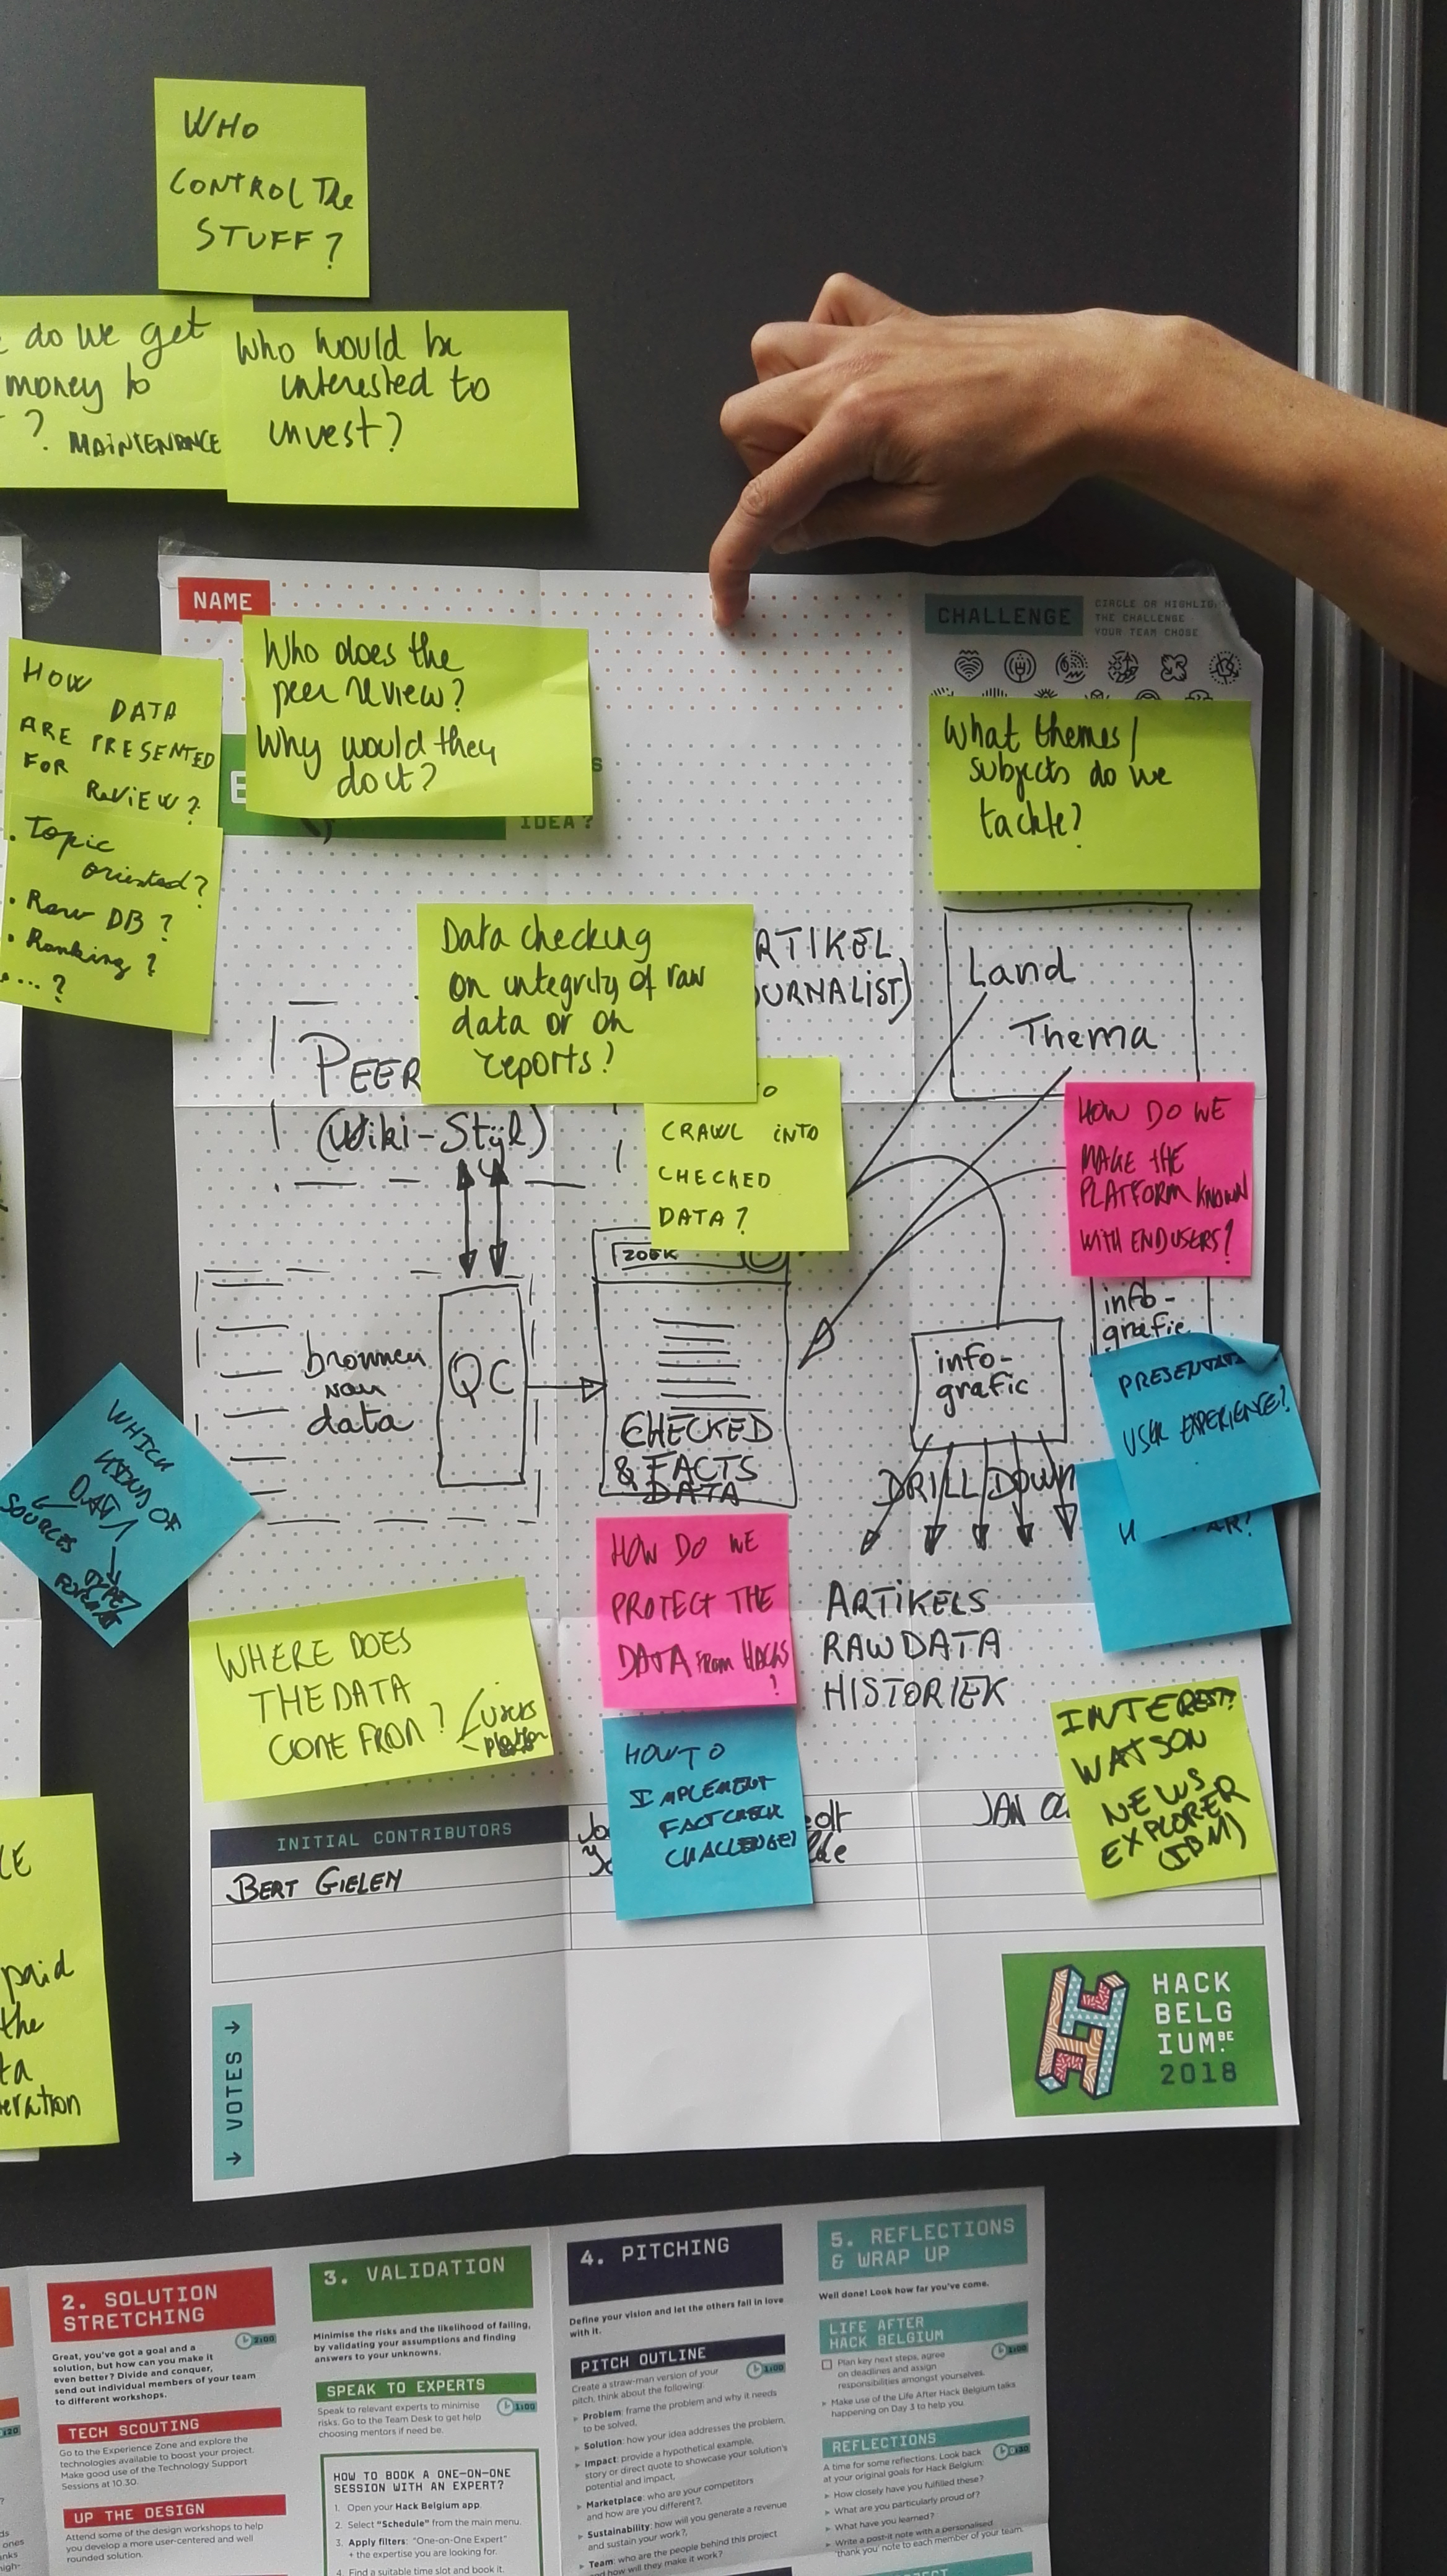 WHO
CONTROL The
STUFF?
do we get
money to
? MAINTENANCE
Who would be
interested to
invest?
NAME
CHALLENGE
CIRCLE OR HIGHLIG
THE CHALLENGE
YOUR TEAM CHOSE
Who does the
peer review?
Why would they
do it?
HOW
DATA
ARE PRESENTED
FOR
ReViEW?
. Topic
oriented?
. Raw DB?
. Ranking?
... ?
E
S
IDEA?
What themes/
subjects do we
tackle?
Data checking
on integrity of raw
data or on
reports?
RTIKEL
OURNALIST)
Land
Thema
PEER
(Wiki-Stijl)
O
CRAWL iNTO
CHECKED
DATA?
HOW DO WE
MAKE THE
PLATFORM KNOWN
WITH ENDUSERS?
ZOEK
bronnen
van
data
QC
CHECKED
& FACTS
DATA
info-
grafic
info-
grafie
PRESENTAT
USER EXPERIENCE?
DRILL DOWN
WHICH
KIND OF
DATA
SOURCES
TYPE/
H AR?
HOW DO WE
PROTECT THE
DATA FROM HACKS
?
ARTIKELS
RAW DATA
HISTORIEK
WHERE DOES
THE DATA
COME FROM?
users
HOW TO
IMPLEMENT
FACTCHECK
CHALLENGE?
INTEREST?
WATSON
NEWS
EXPLORER
(IBM)
INITIAL CONTRIBUTORS
BERT GIELEN
JAN
paid
the
ta
eration
VOTES
HACK
BELG
IUM.BE
2018
2. SOLUTION
STRETCHING
2:00
Great, you've got a goal and a
solution, but how can you make it
even better? Divide and conquer,
send out individual members of your team
to different workshops.
TECH SCOUTING
Go to the Experience Zone and explore the
technologies available to boost your project.
Make good use of the Technology Support
Sessions at 10.30.
UP THE DESIGN
Attend some of the design workshops to help
you develop a more user-centered and well
rounded solution.
3. VALIDATION
Minimise the risks and the likelihood of failing,
by validating your assumptions and finding
answers to your unknowns.
SPEAK TO EXPERTS
Speak to relevant experts to minimise
risks. Go to the Team Desk to get help
choosing mentors if need be.
1:00
HOW TO BOOK A ONE-ON-ONE
SESSION WITH AN EXPERT?
1. Open your Hack Belgium app.
2. Select "Schedule" from the main menu.
3. Apply filters: "One-on-One Expert"
+ the expertise you are looking for.
4. Find a suitable time slot and book it.
4. PITCHING
Define your vision and let the others fall in love
with it.
PITCH OUTLINE
Create a straw-man version of your
pitch, think about the following:
1:00
Problem: frame the problem and why it needs
to be solved.
Solution: how your idea addresses the problem.
Impact: provide a hypothetical example,
story or direct quote to showcase your solution's
potential and impact.
Marketplace: who are your competitors
and how are you different?
Sustainability: how will you generate a revenue
and sustain your work?
Team: who are the people behind this project
and how will they make it work?
5. REFLECTIONS
& WRAP UP
Well done! Look how far you've come.
LIFE AFTER
HACK BELGIUM
1:00
Plan key next steps, agree
on deadlines and assign
responsibilities amongst yourselves.
Make use of the Life After Hack Belgium talks
happening on Day 3 to help you.
REFLECTIONS
A time for some reflections. Look back
at your original goals for Hack Belgium:
How closely have you fulfilled these?
What are you particularly proud of?
What have you learned?
Write a post-it note with a personalised
thank you note to each member of your team.